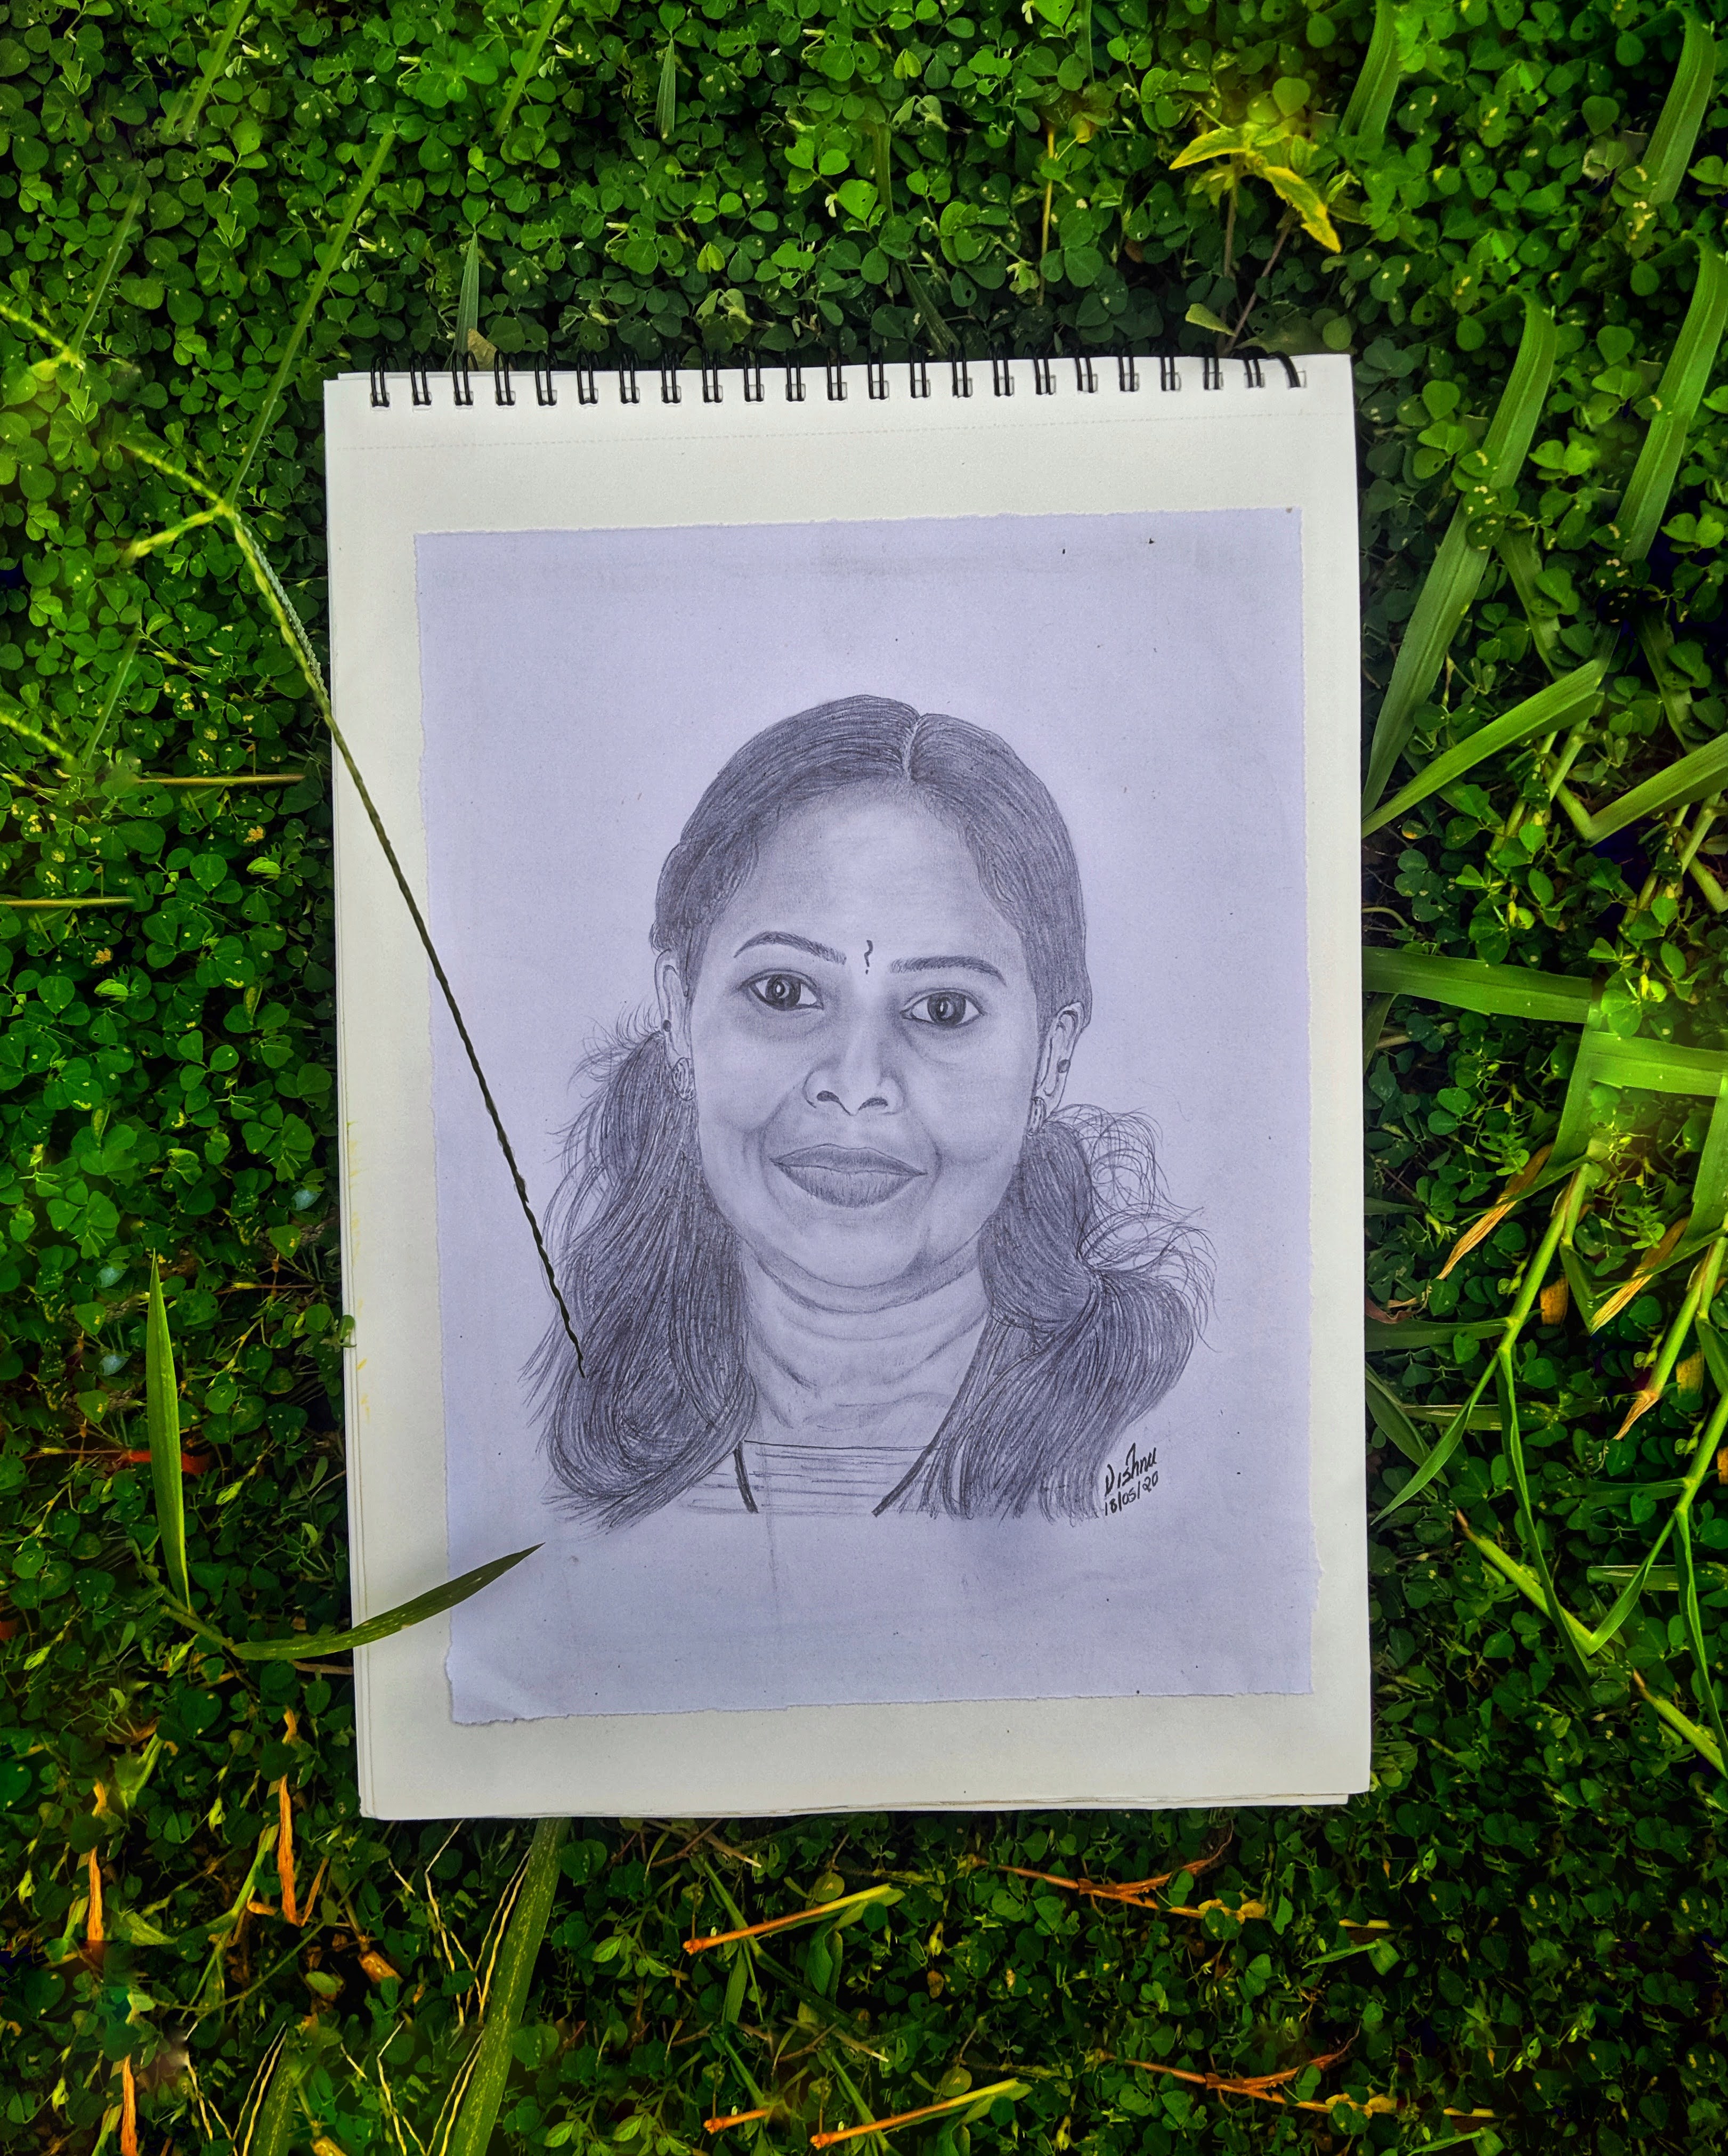 Vishnu
18/05/20